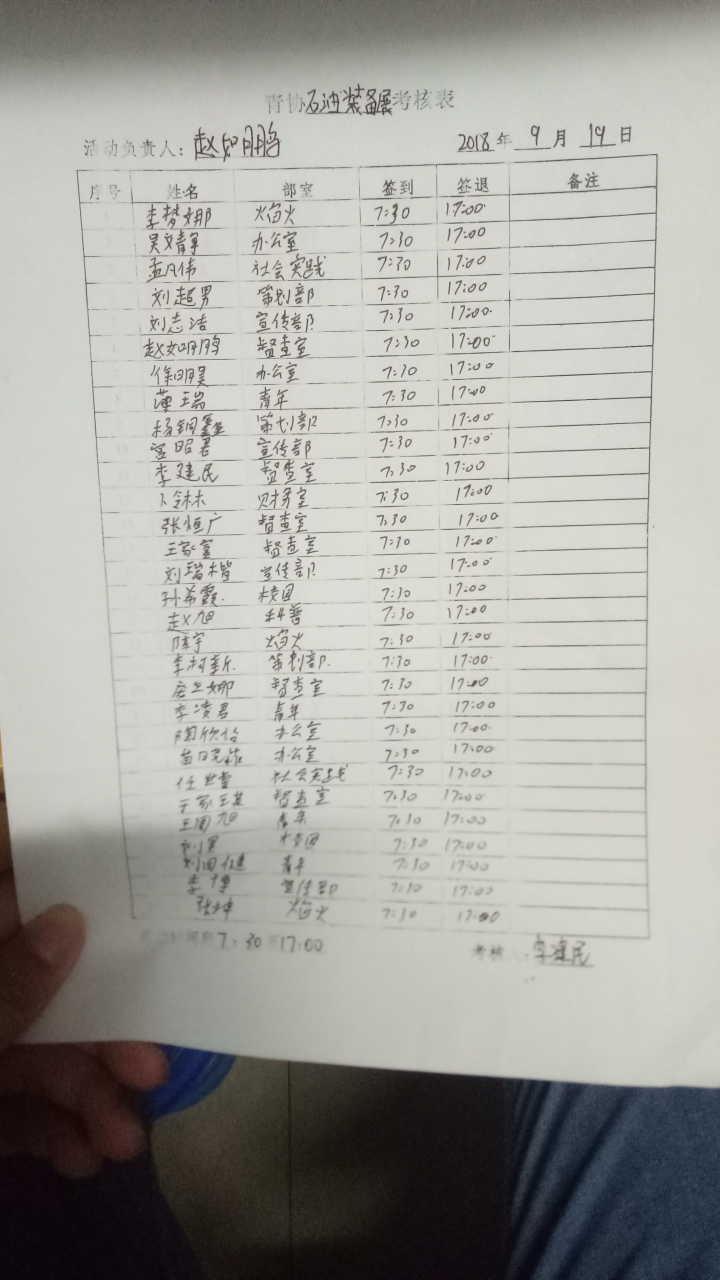 青协石油装备展考核表
活动负责人：赵如明鹏 2018年 9 月 19 日
序号 姓名 部室 签到 签退 备注
李梦娜 焰火 7:30 17:00
吴文静 办公室 7:30 17:00
孟凡伟 社会实践 7:30 17:00
刘超男 策划部 7:30 17:00
刘志洁 宣传部 7:30 17:00
赵如明鹏 督查室 7:30 17:00
徐明昊 办公室 7:30 17:00
薄瑞 青年 7:30 17:00
杨钰鑫 策划部 7:30 17:00
宫昭君 宣传部 7:30 17:00
李建民 督查室 7:30 17:00
卜林 财务室 7:30 17:00
张恒广 督查室 7:30 17:00
王家宝 督查室 7:30 17:00
刘瑞楷 宣传部 7:30 17:00
孙希霞 校团 7:30 17:00
赵旭 科普 7:30 17:00
陈宇 焰火 7:30 17:00
李柯新 策划部 7:30 17:00
娜 督查室 7:30 17:00
李凌君 青年 7:30 17:00
陶欣怡 办公室 7:30 17:00
苗 办公室 7:30 17:00
任 社会实践 7:30 17:00
于家 督查室 7:30 17:00
王国旭 青年 7:30 17:00
刘 校团 7:30 17:00
刘国健 青年 7:30 17:00
李 宣传部 7:30 17:00
张坤 焰火 7:30 17:00
7:30 17:00 考核人：李建民